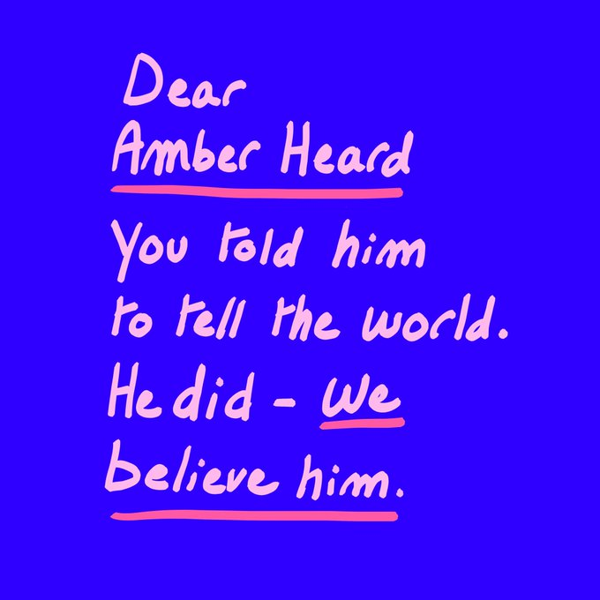 Dear
Amber Heard
You told him
to tell the world.
He did - We
believe him.